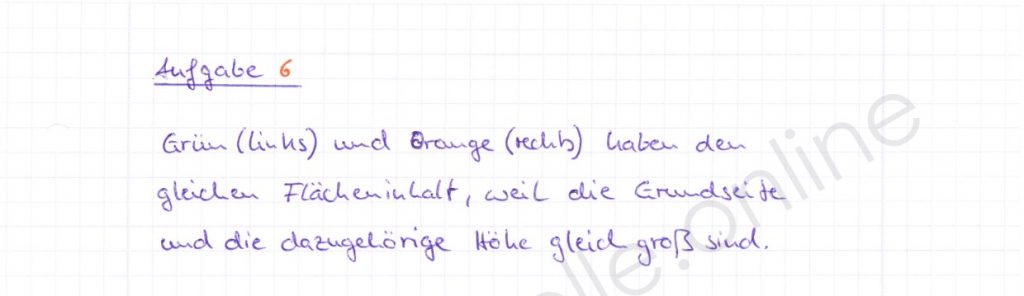 Aufgabe 6
Grün (links) und Orange (rechts) haben den
gleichen Flächeninhalt, weil die Grundseite
und die dazugehörige Höhe gleich groß sind.
lle.online